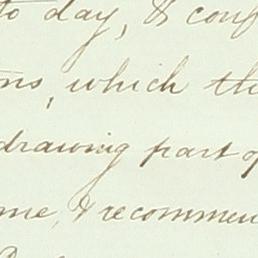 to day, & conf
ns, which th
drawing part of
me, & recommen